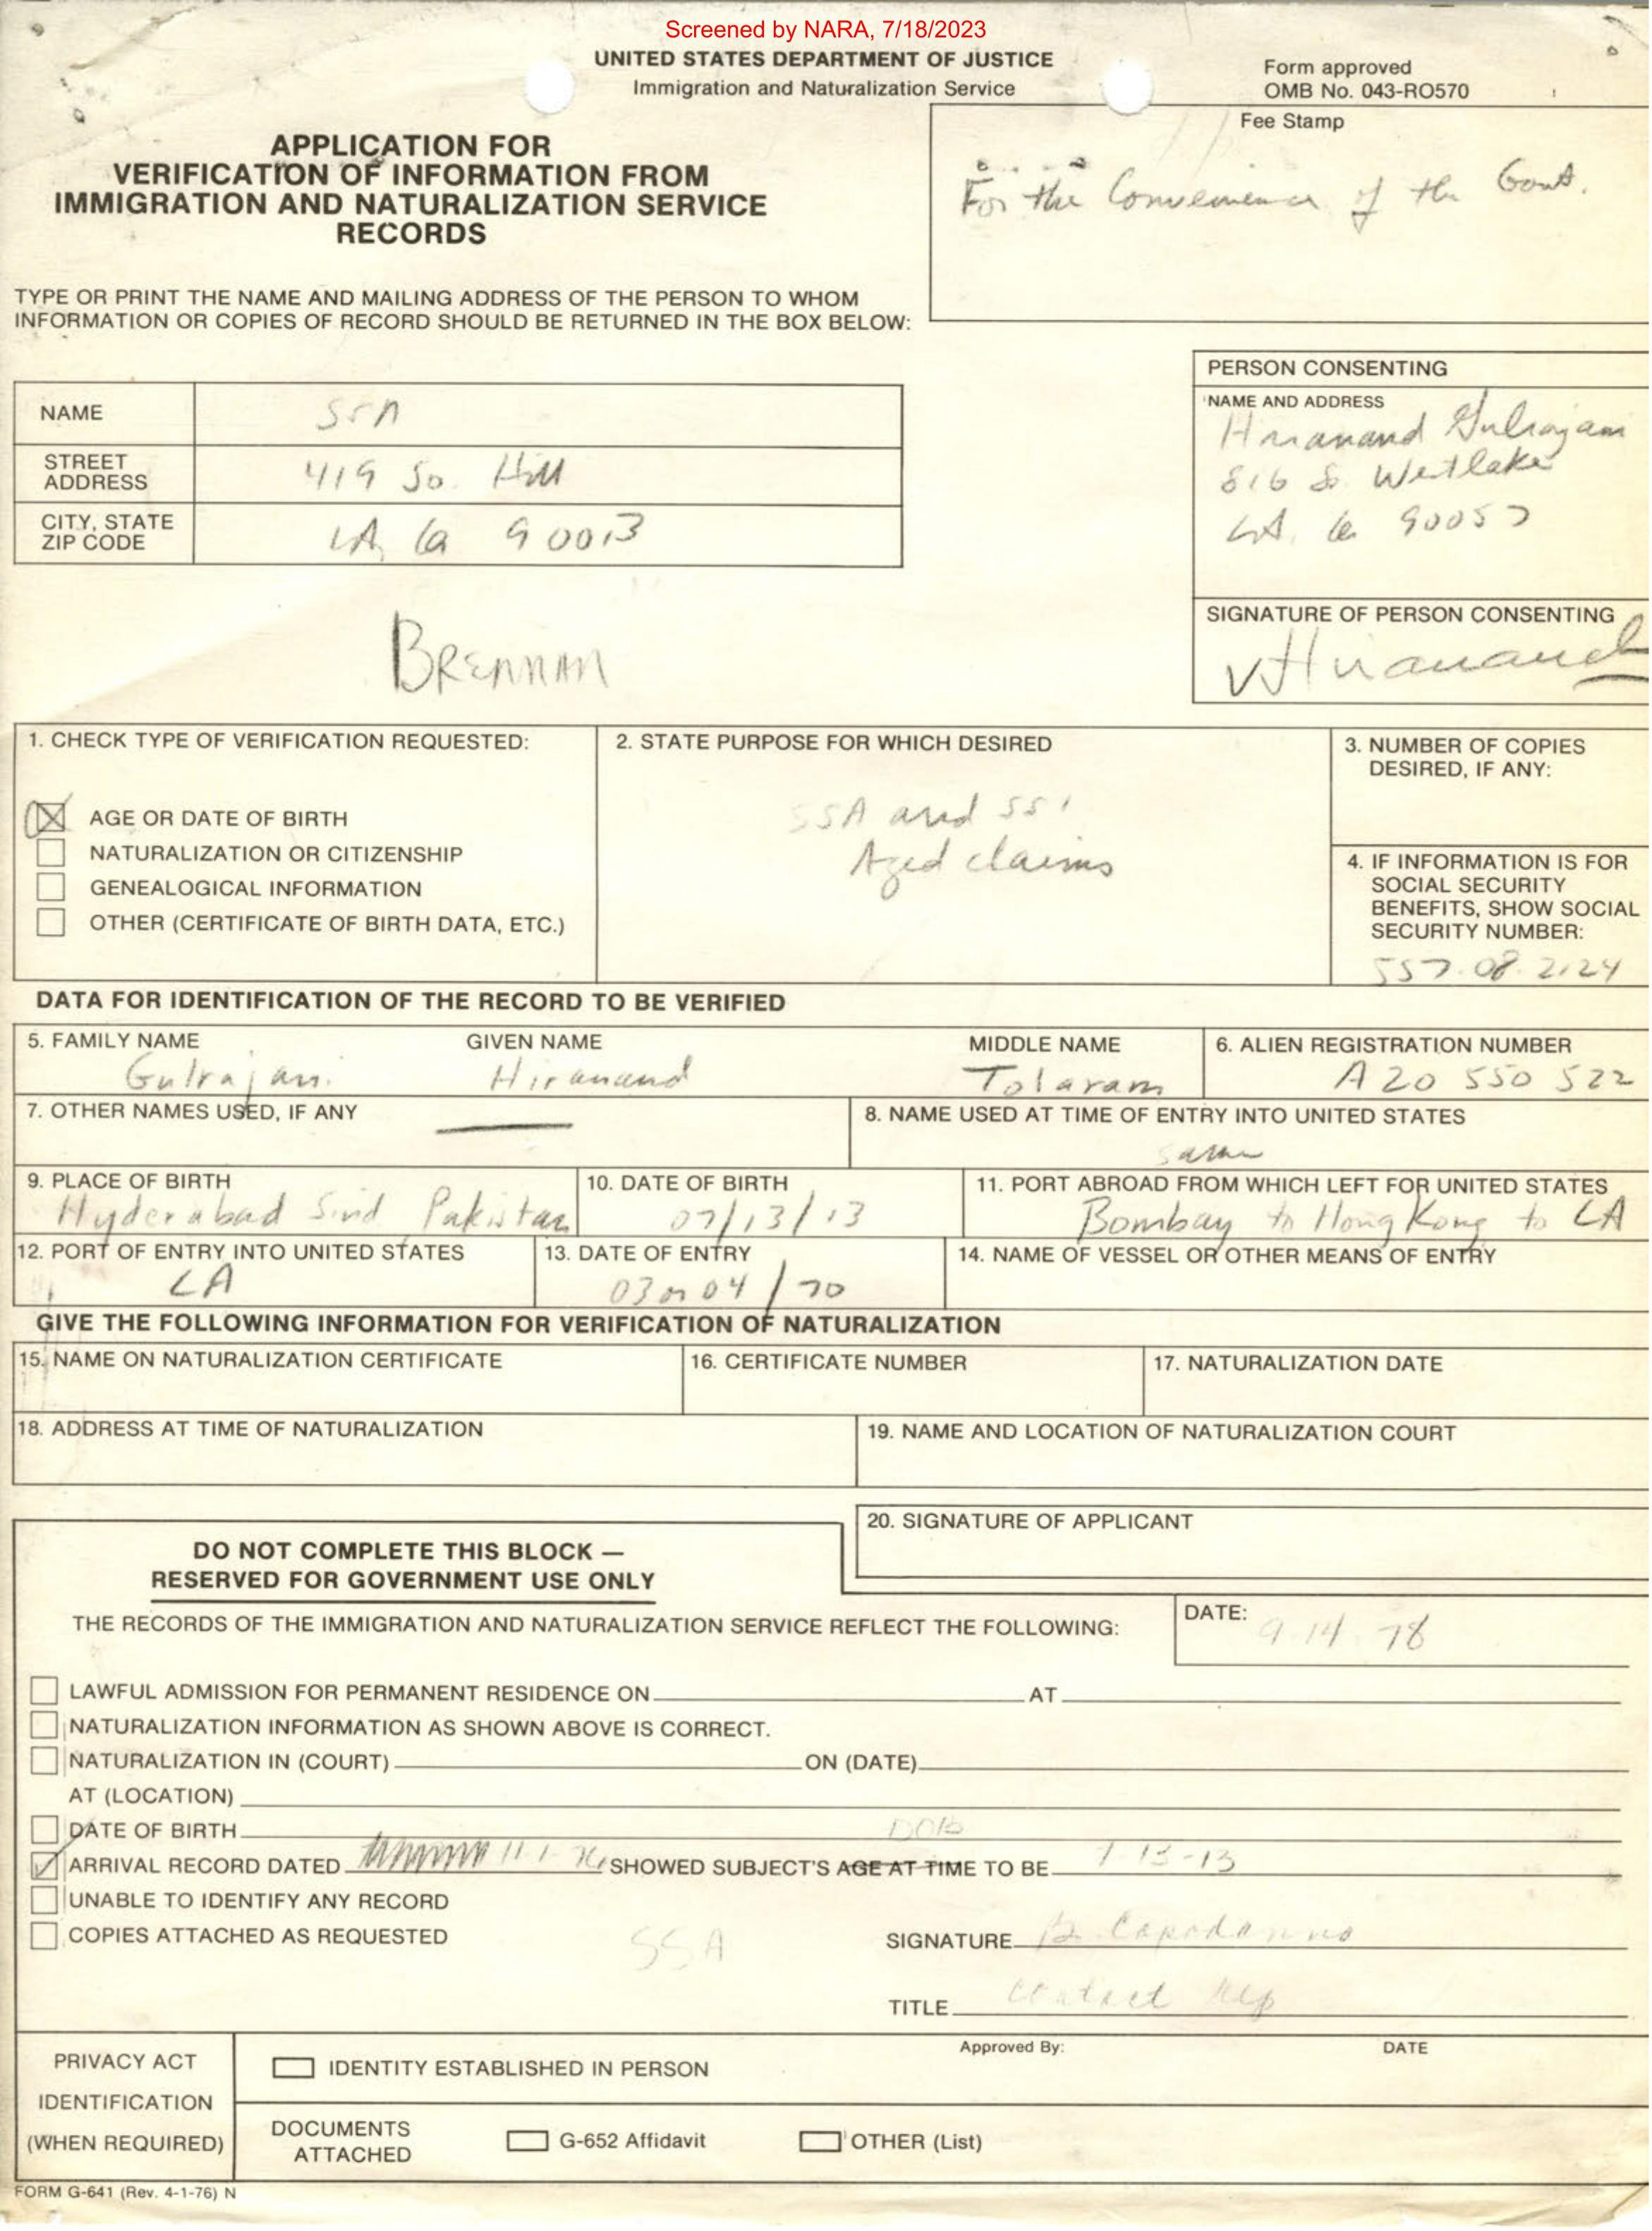 Screened by NARA, 7/18/2023
UNITED STATES DEPARTMENT OF JUSTICE
Immigration and Naturalization Service
Form approved
OMB No. 043-RO570
APPLICATION FOR
VERIFICATION OF INFORMATION FROM
IMMIGRATION AND NATURALIZATION SERVICE
RECORDS
Fee Stamp
For the Convenience of the Govt.
TYPE OR PRINT THE NAME AND MAILING ADDRESS OF THE PERSON TO WHOM
INFORMATION OR COPIES OF RECORD SHOULD BE RETURNED IN THE BOX BELOW:
NAME SSA
STREET ADDRESS 419 So. Hill
CITY, STATE ZIP CODE LA, Ca 90013
PERSON CONSENTING
NAME AND ADDRESS
Hiranand Gulrajani
816 S. Westlake
LA. Ca 90057
SIGNATURE OF PERSON CONSENTING
Hiranand
BRENNAN
1. CHECK TYPE OF VERIFICATION REQUESTED:
AGE OR DATE OF BIRTH
NATURALIZATION OR CITIZENSHIP
GENEALOGICAL INFORMATION
OTHER (CERTIFICATE OF BIRTH DATA, ETC.)
2. STATE PURPOSE FOR WHICH DESIRED
SSA and SSI
Aged claims
3. NUMBER OF COPIES
DESIRED, IF ANY:
4. IF INFORMATION IS FOR
SOCIAL SECURITY
BENEFITS, SHOW SOCIAL
SECURITY NUMBER:
557.08.2124
DATA FOR IDENTIFICATION OF THE RECORD TO BE VERIFIED
5. FAMILY NAME GIVEN NAME MIDDLE NAME
Gulrajani Hiranand Tolaram
6. ALIEN REGISTRATION NUMBER
A20 550 522
7. OTHER NAMES USED, IF ANY
8. NAME USED AT TIME OF ENTRY INTO UNITED STATES
same
9. PLACE OF BIRTH
Hyderabad Sind Pakistan
10. DATE OF BIRTH
07/13/13
11. PORT ABROAD FROM WHICH LEFT FOR UNITED STATES
Bombay to Hong Kong to LA
12. PORT OF ENTRY INTO UNITED STATES
LA
13. DATE OF ENTRY
03 or 04/70
14. NAME OF VESSEL OR OTHER MEANS OF ENTRY
GIVE THE FOLLOWING INFORMATION FOR VERIFICATION OF NATURALIZATION
15. NAME ON NATURALIZATION CERTIFICATE
16. CERTIFICATE NUMBER
17. NATURALIZATION DATE
18. ADDRESS AT TIME OF NATURALIZATION
19. NAME AND LOCATION OF NATURALIZATION COURT
20. SIGNATURE OF APPLICANT
DO NOT COMPLETE THIS BLOCK —
RESERVED FOR GOVERNMENT USE ONLY
THE RECORDS OF THE IMMIGRATION AND NATURALIZATION SERVICE REFLECT THE FOLLOWING:
DATE: 9.14.78
LAWFUL ADMISSION FOR PERMANENT RESIDENCE ON AT
NATURALIZATION INFORMATION AS SHOWN ABOVE IS CORRECT.
NATURALIZATION IN (COURT) ON (DATE)
AT (LOCATION)
DATE OF BIRTH DOB
ARRIVAL RECORD DATED SHOWED SUBJECT'S AGE AT TIME TO BE 7-13-13
UNABLE TO IDENTIFY ANY RECORD
COPIES ATTACHED AS REQUESTED
SSA
SIGNATURE B. Capodanno
TITLE Contact Rep
PRIVACY ACT
IDENTIFICATION
(WHEN REQUIRED)
IDENTITY ESTABLISHED IN PERSON
Approved By: DATE
DOCUMENTS
ATTACHED
G-652 Affidavit
OTHER (List)
FORM G-641 (Rev. 4-1-76) N